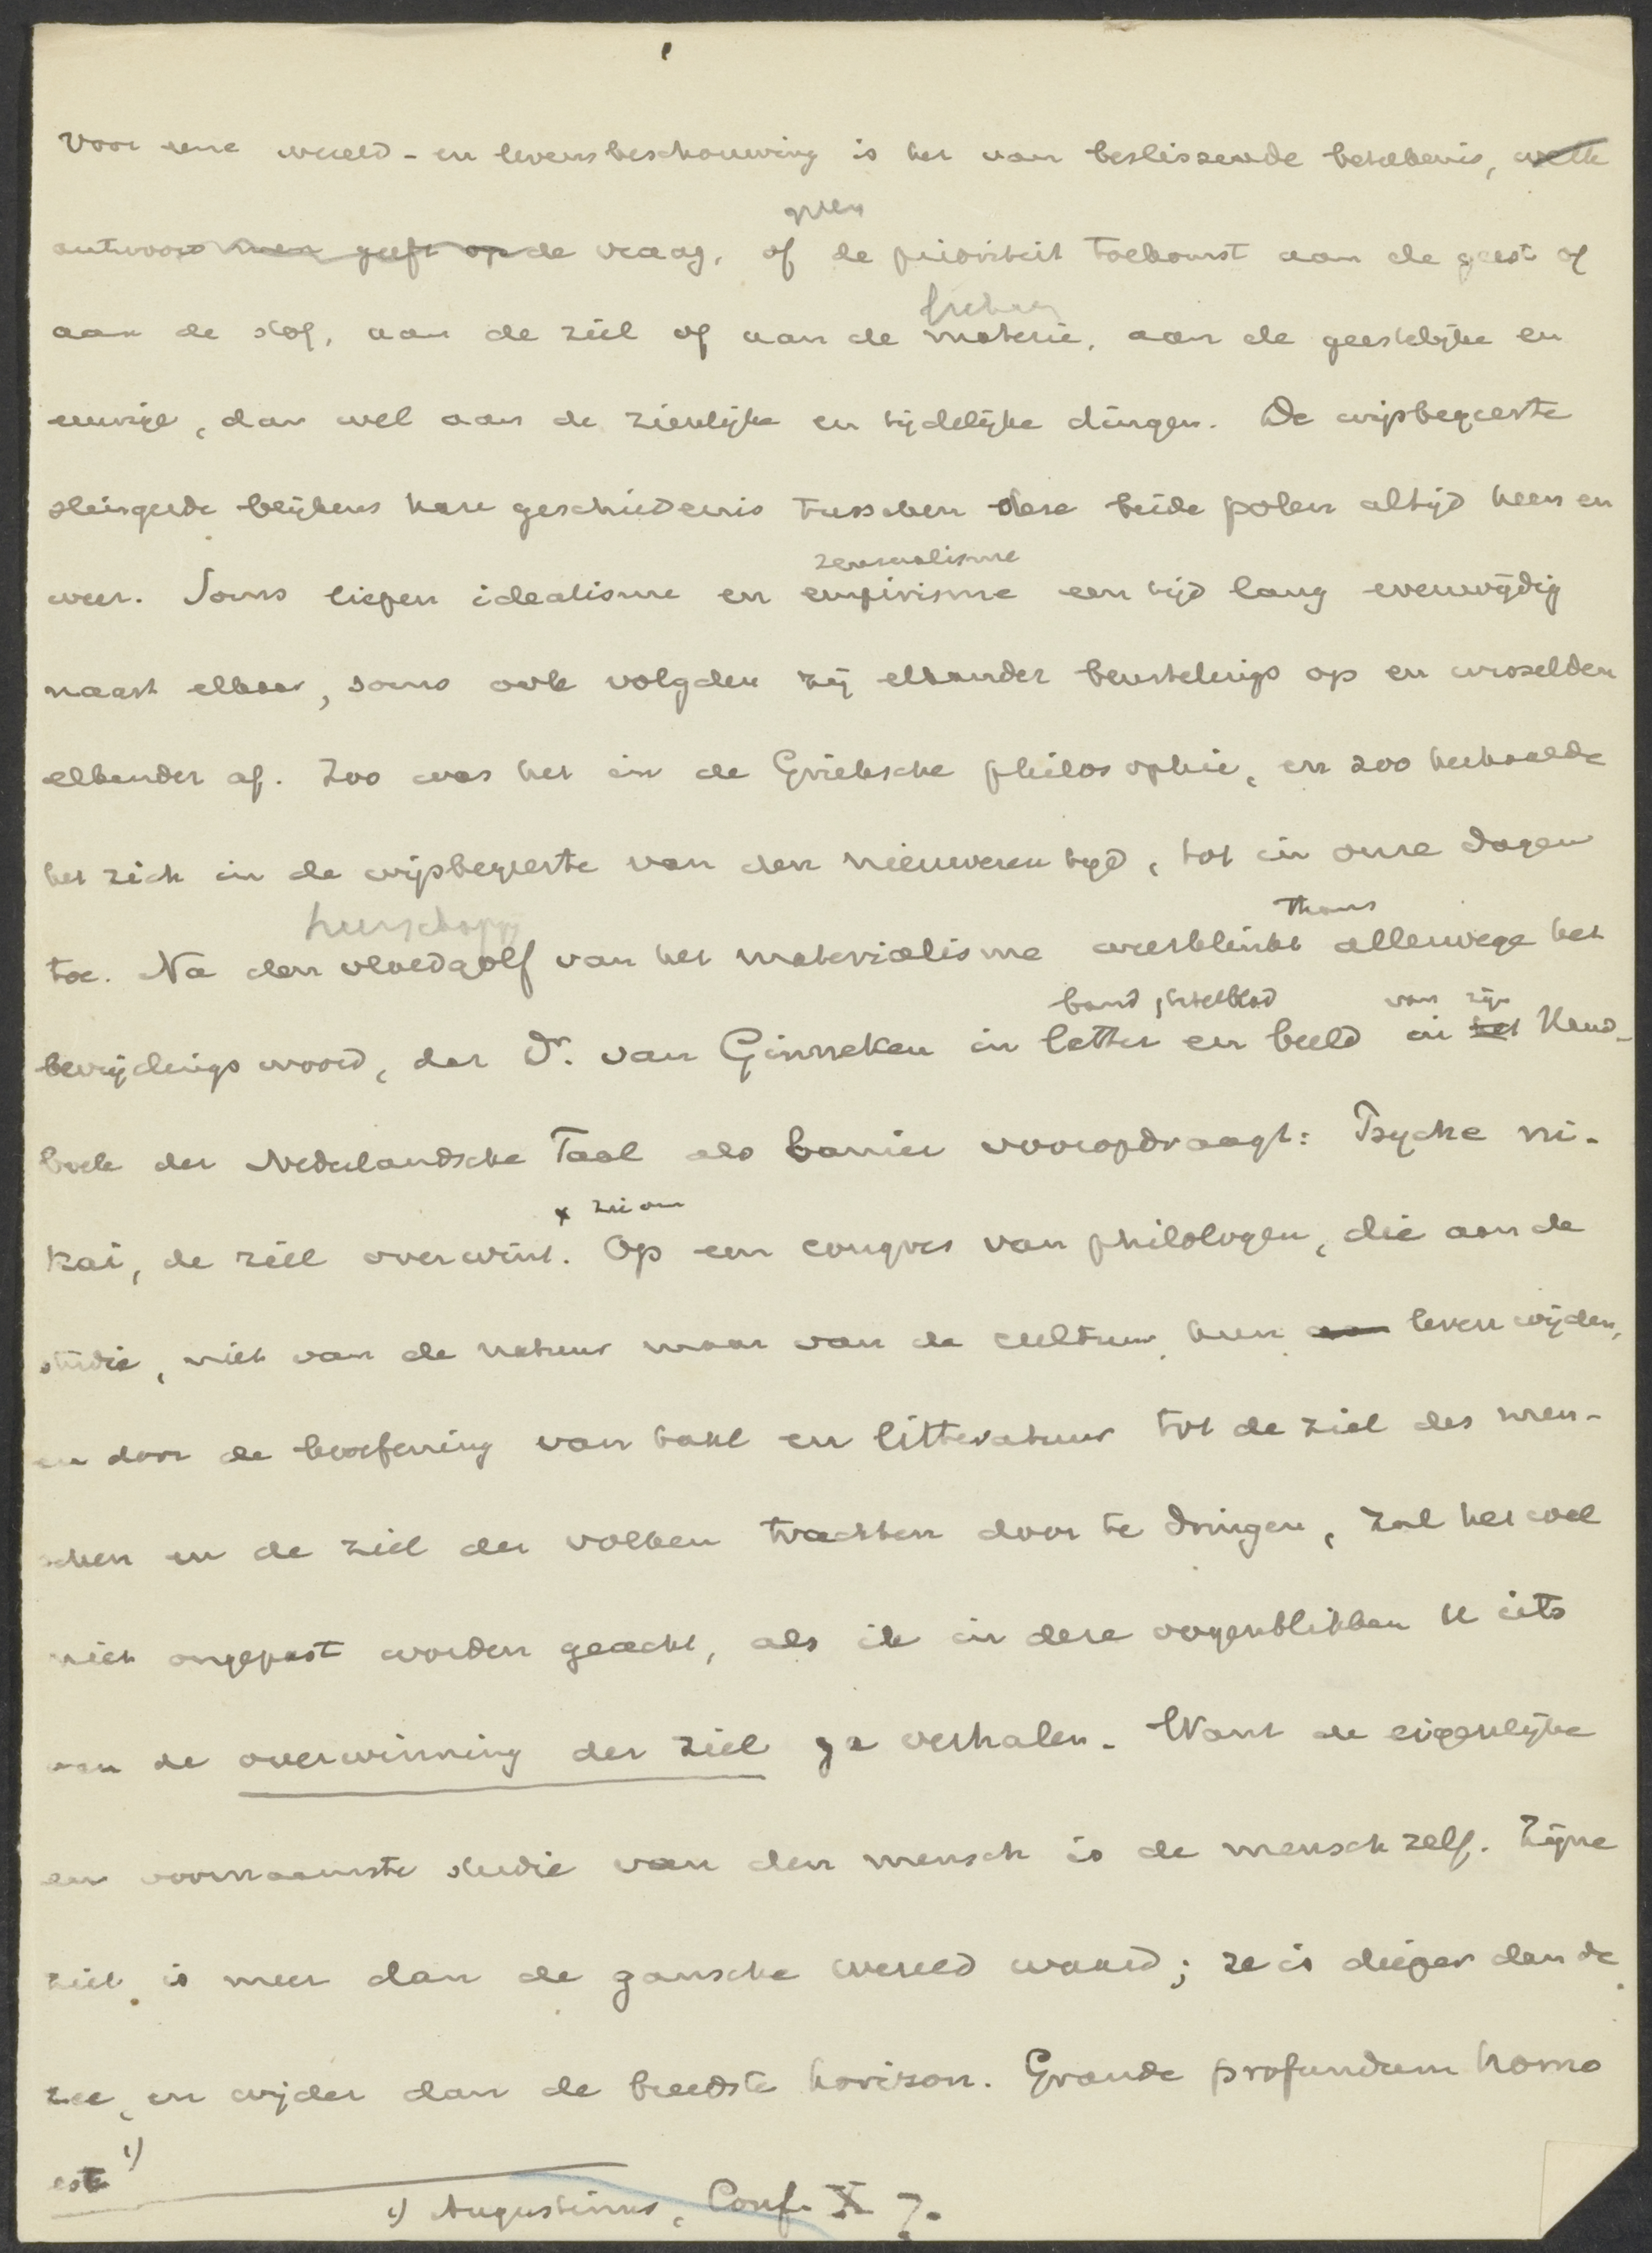 Voor eene wereld- en levensbeschouwing is het van beslissende beteekenis, welk
antwoord men geeft op de vraag, of de prioriteit toekomt aan de geest of
aan de stof, aan de ziel of aan de materie, aan de geestelijke en
eeuwige, dan wel aan de zienlijke en tijdelijke dingen. De wijsbegeerte
slingerde blijkens hare geschiedenis tusschen deze beide polen altijd heen en
zensualisme
weer. Soms liepen idealisme en empirisme een tijd lang evenwijdig
naast elkaar, soms ook volgden zij elkander beurtelings op en wisselden
elkander af. Zoo was het in de Grieksche philosophie, en zoo herhaalde
het zich in de wijsbegeerte van den nieuweren tijd, tot in onze dagen
heerschappij thans
toe. Na den vloedgolf van het materialisme weerklinkt allerwege het
band, titelblad van zijn
bevrijdings woord, dat Dr. van Ginneken in letter en beeld in het Hand-
boek der Nederlandsche Taal als banier vooropdraagt: Psyche ni-
x zie om
kai, de ziel overwint. Op een congres van philologen, die aan de
studie, niet van de natuur maar van de cultuur, hun aan leven wijden,
en door de beoefening van taal en litteratuur tot de ziel des men-
schen en de ziel der volken trachten door te dringen, zal het wel
niet ongepast worden geacht, als ik in deze oogenblikken U iets
van de overwinning der ziel ga verhalen. Want de eigenlijke
en voornaamste studie van den mensch is de mensch zelf. Zijne
ziel is meer dan de gansche wereld waard; ze is dieper dan de
zee, en wijder dan de breedste horizon. Grande profundum homo
est 1)
1) Augustinus, Conf. X 7.